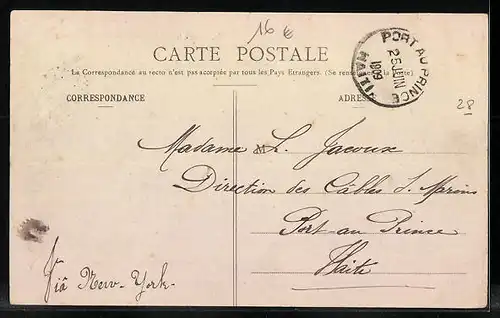 16 €
CARTE POSTALE
La Correspondance au recto n'est pas acceptée par tous les Pays Etrangers. (Se renseigner à la Poste)
PORT AU PRINCE
25 JUIN
1909
HAITI
CORRESPONDANCE
ADRESSE
28
Madame L. Jacoux
Direction des Câbles S. Marins
Port-au Prince
Haïti
Viâ New-York-